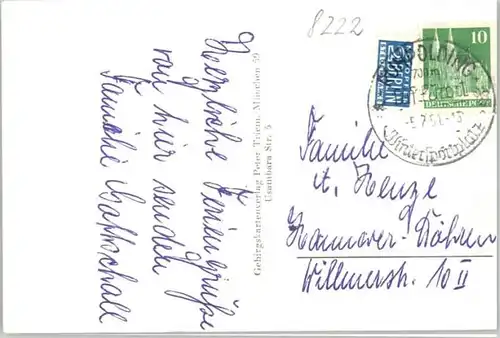 8222
Herzliche Feriengrüße
von hier senden
Familie
Gebirgskartenverlag Peter Triem, München 59
Usambara Str. 5
NOTOPFER
2 BERLIN
STEUERMARKE
10
DEUTSCHE POST
RUHPOLDING
Wintersportplatz
Familie
A. Henze
Hannover-Döhren
Willmerstr. 10 II